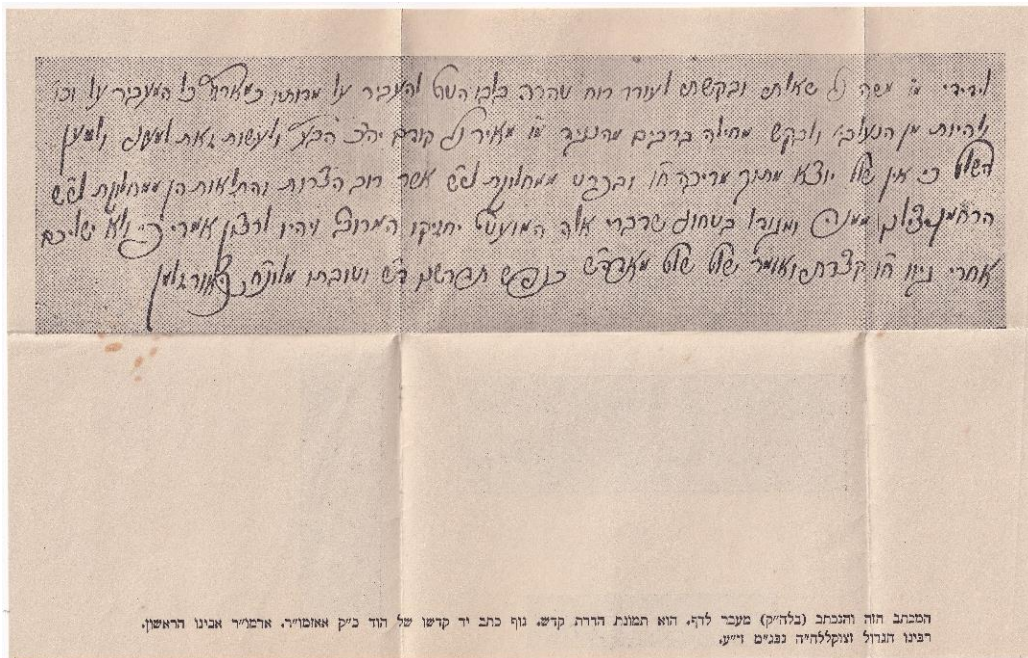 לידידי מו׳ משה נ״י שאלתי ובקשתי לעורר רוח טהרה בלבו הטוב להעביר על מדותיו כמאמרז״ל כל המעביר על וכו׳
ולהיות מן הנעלבי׳ ולבקש מחילה ברבים מהנגיד מו׳ מאיר נ״י קודם ולעשות זאת למעני ולמען
השלום כי אין טוב יוצא מתוך מריבה ח״ו ובפרט ממחלוקת אשר רוב הצרות והתלאות הן ממחלוקת
הרחמן יצילנו ממנה ומגודל בטחוני שדברי אלה המועטים יחזיקו המרובה ויהיו לרצון אמרי פי ולא ישליכם
אחרי גיוו ח״ו קצרתי ואומר שלום שלום כנפש
המכתב הזה והנכתב (בלה״ק) מעבר לדף, הוא תמונת הדרת קדש, גוף כתב יד קדשו של הוד כ״ק אאזמו״ר, אדמו״ר אבינו הראשון,
רבינו הגדול זצוקללה״ה נבג״מ זי״ע.